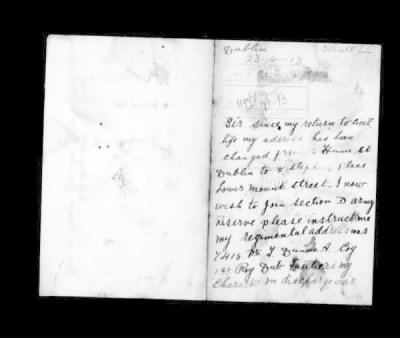 Dublin
23-4-13
Sir since my return to civil
life my address has been
changed from Hume St
Dublin to 8 Stephens Place
Lower mount street. I now
wish to join section D army
Reserve please instruct me
my regimental address was
7415 Pte J Dunne A. Coy
1st Roy Dub Fusiliers my
Character on discharge was